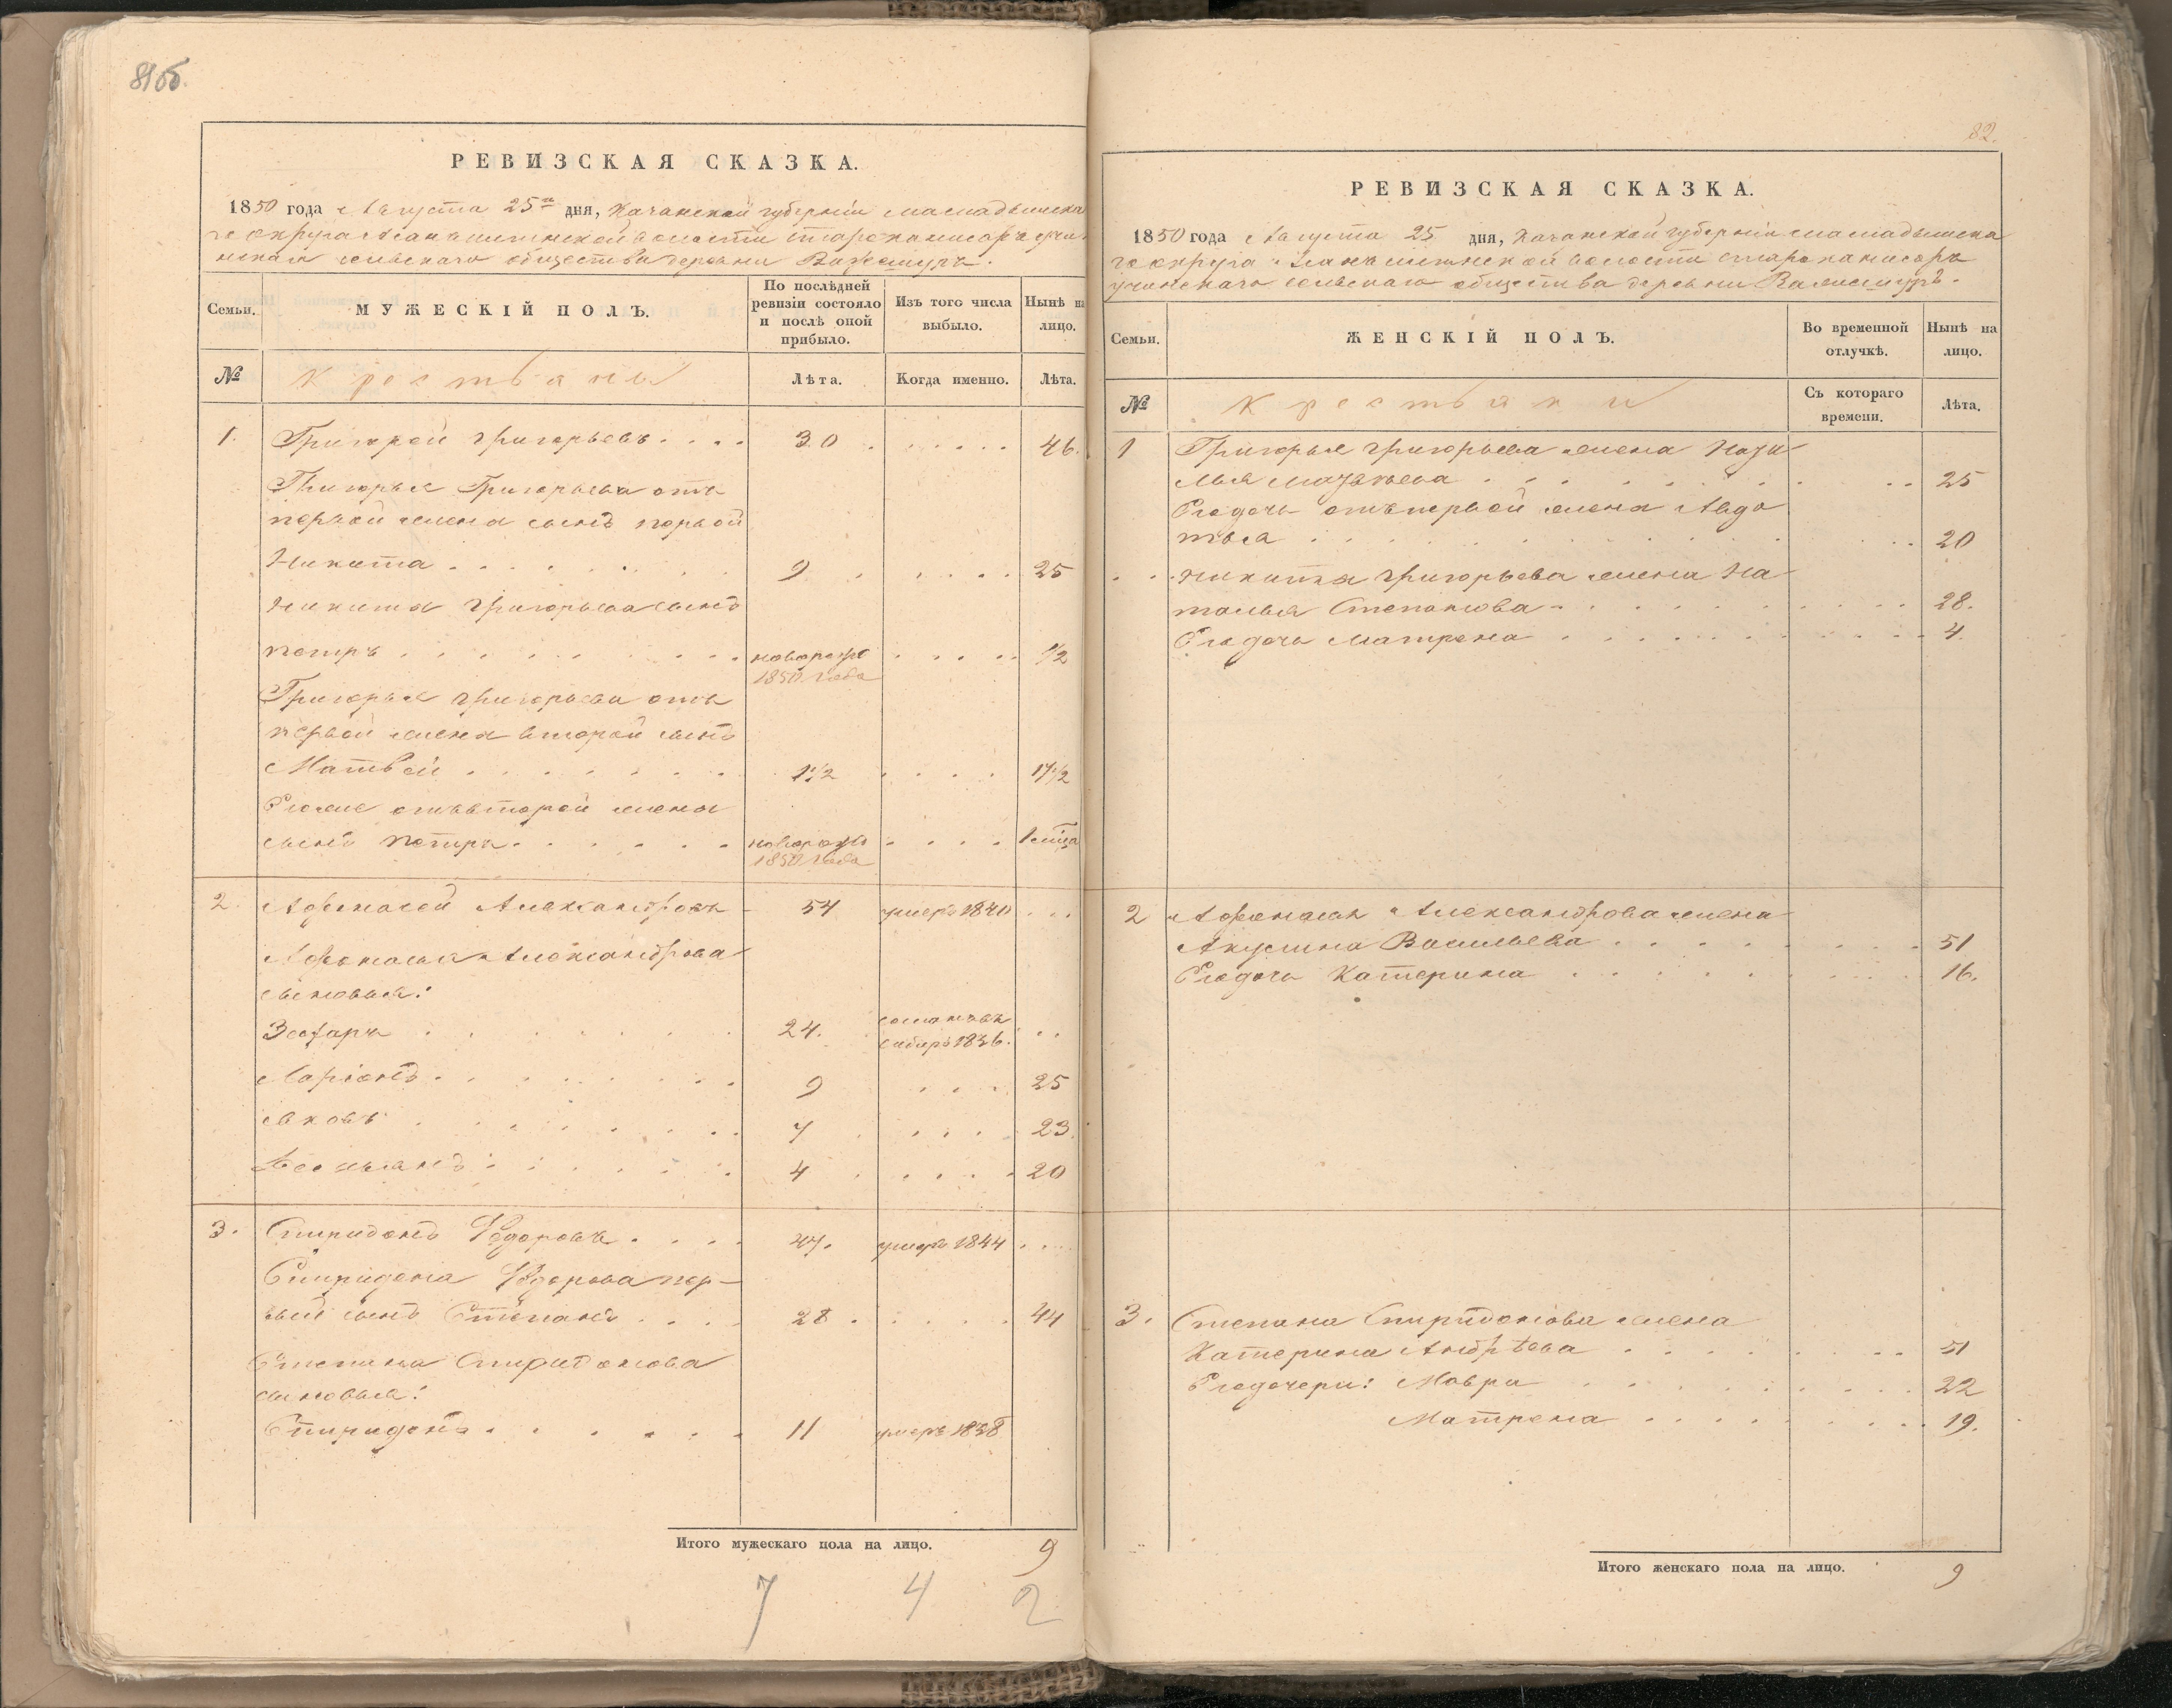 81об.
РЕВИЗСКАЯ СКАЗКА.
1850 года Августа 25го дня, Казанской губернии Мамадышска
го округа волости
скаго сельскаго общества деревни Важешуръ.
Семьи.
МУЖЕСКІЙ ПОЛЪ.
По послѣдней ревизіи состояло и послѣ оной прибыло.
Изъ того числа выбыло.
Нынѣ на лицо.
№
Крестьяны
Лѣта.
Когда именно.
Лѣта.
1. Григорей Григорьевъ. . . . 30 . . . . . . 46.
Григорья Григорьева отъ
первой жены сынъ первой
Никита . . . . . . . . 9 . . . . . 25
Никиты Григорьева сынъ
Петръ . . . . . . . . . новорожд . . . . . 1/2
1850 года
Григорья Григорьева отъ
первой жены второй сынъ
Матвей . . . . . . . 1 1/2 . . . . 17 1/2
Егоже отъ второй жены
сынъ Петръ . . . . . . новорожд . . . . 1 мѣца
1850 года
2. Афонасей Александровъ - 54 умеръ 1840 . . .
Афонасья Александрова
сыновья:
Захаръ . . . . . . . 24. сосланъ въ . .
сибирь 1836.
Ларіонъ . . . . . . . . 9 . . . . 25
Яковъ . . . . . . . . 7 . . . . . 23.
Демьянъ . . . . . . 4 . . . . . 20
3. Спиридонъ Федоровъ . . . . 47. умеръ 1844 . . .
Спиридона Федорова пер-
вый сынъ Степанъ . . . . 28 . . . . . . 44
Степана Спиридонова
сыновья:
Спиридонъ . . . . . . . 11 умеръ 1838
Итого мужескаго пола на лицо. 9
7 4 2
82.
РЕВИЗСКАЯ СКАЗКА.
1850 года Августа 25 дня, Казанской губерніи Мамадышска
го округа волости
учинскаго сельскаго общества деревни Важешуръ.
Семьи.
ЖЕНСКІЙ ПОЛЪ.
Во временной отлучкѣ.
Нынѣ на лицо.
№
Крестьяны
Съ котораго времени.
Лѣта.
1 Григорья Григорьева жена
. . . . . . . . . 25
Егодочь отъ первой жены Авдо
тья . . . . . . . . . 20
Никиты Григорьева жена На
талья Степанова . . . . . . . . . 28.
Егодочь Матрена . . . . . . . . . 4.
2 Афонасья Александрова жена
Акулина Васильева . . . . . . . . 51
Егодочь Катерина . . . . . . . . 16.
3. Степана Спиридонова жена
Катерина Андрѣева . . . . . . . 51
Егодочери: Мавра . . . . . . . . 22
Матрена . . . . . . . . 19.
Итого женскаго пола на лицо. 9